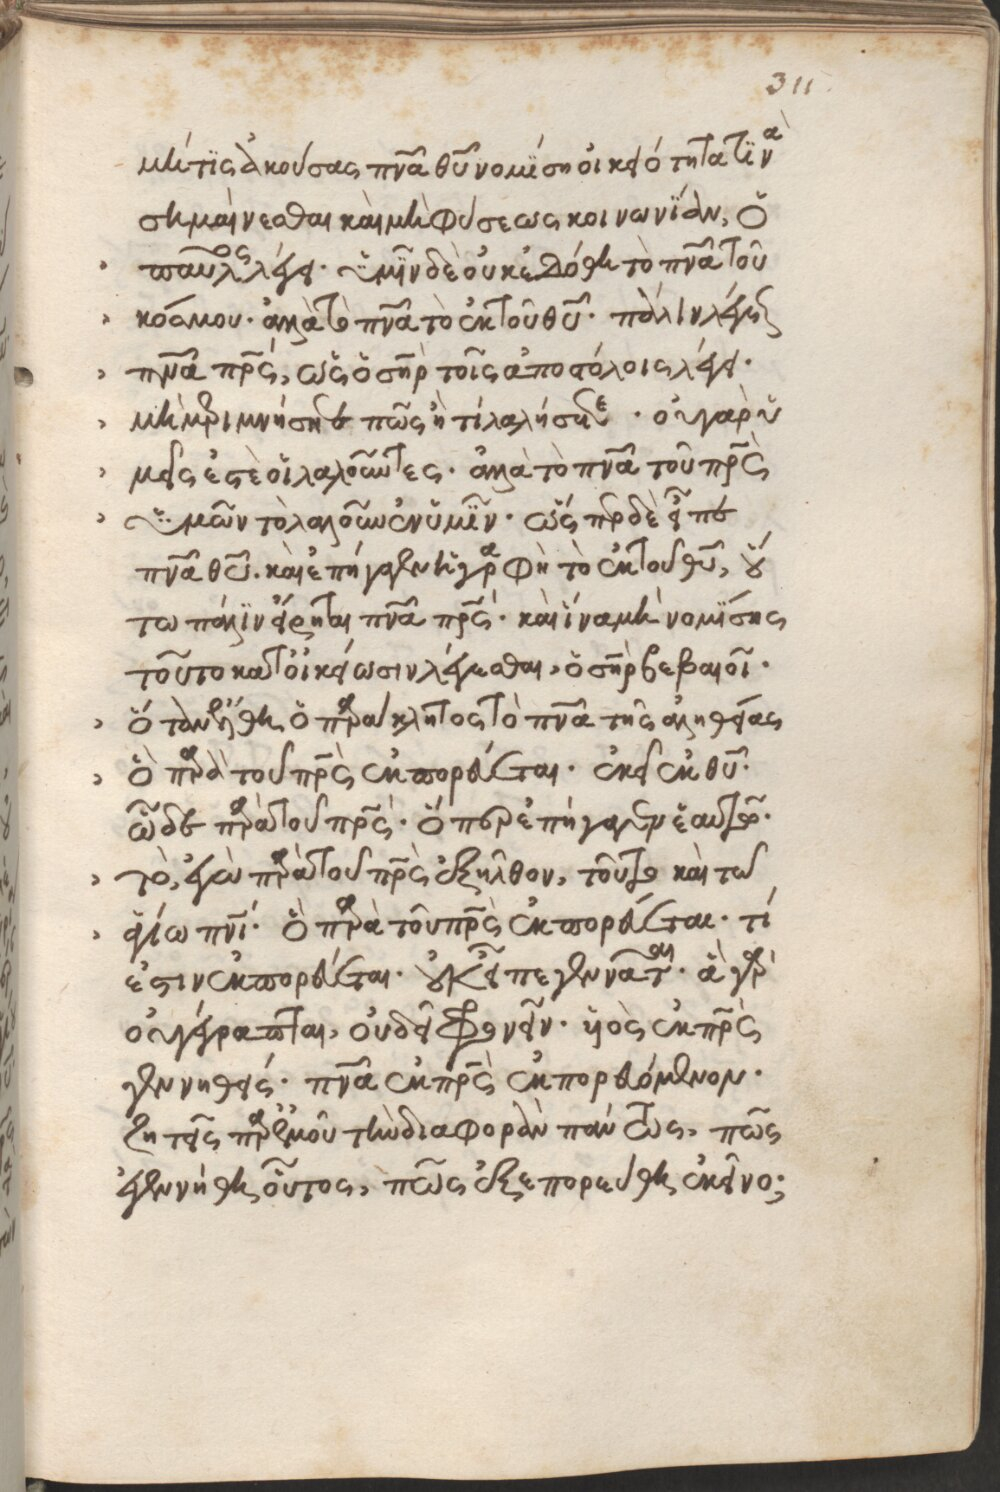 311
μήτις ἀκούσας πνᾶ θῦ νομίση οἰκειότητα τινὰ
σημαίνεσθαι καὶ μὴ φύσεως κοινωνίαν, ὁ
παῦλος λέγει· ὑμῖν δὲ οὐκ ἐδόθη τὸ πνᾶ τοῦ
κόσμου· ἀλλὰ τὸ πνᾶ τὸ ἐκ τοῦ θῦ· πάλιν λέγει
πνᾶ πρς, ὡς ὁ σηρ τοῖς ἀποστόλοις λέγει·
μὴ μεριμνήσητε πῶς ἢ τί λαλήσητε· οὐ γὰρ ὑ
μεῖς ἐστὲ οἱ λαλοῦντες· ἀλλὰ τὸ πνᾶ τοῦ πρς
ὑμῶν τὸ λαλοῦν ἐν ὑμῖν· ὥσπερ δὲ εἶπε
πνᾶ θῦ. καὶ ἐπήγαγεν ἡ γραφὴ τὸ ἐκ τοῦ θῦ, οὕ
τω πάλιν εἴρηται πνᾶ πρς· καὶ ἵνα μὴ νομίσης
τοῦτο κατ οἰκείωσιν λέγεσθαι, ὁ σηρ βεβαιοῖ·
ὅταν ἔλθη ὁ παράκλητος τὸ πνᾶ τῆς ἀληθείας
ὃ παρὰ τοῦ πρς ἐκπορεύεται· ἐκεῖ ἐκ θῦ·
ὧδε παρὰ τοῦ πρς· ὅπερ ἐπήγαγεν ἑαυτῷ·
τὸ, ἐγὼ παρὰ τοῦ πρς ἐξῆλθον, τοῦτο καὶ τῶ
ἁγίω πνι· ὃ παρὰ τοῦ πρς ἐκπορεύεται· τί
ἐστιν ἐκπορεύεται· οὐκ εἶπε γεννᾶται· ἃ γὰρ
οὐ γέγραπται, οὐ δεῖ φρονεῖν· υἱὸς ἐκ πρς
γεννηθείς· πνᾶ ἐκ πρς ἐκπορευόμενον·
ζητεῖς παρ ἐμοῦ τὴν διαφορὰν πάντως, πῶς
ἐγεννήθη οὗτος, πῶς ἐξεπορεύθη ἐκεῖνο;